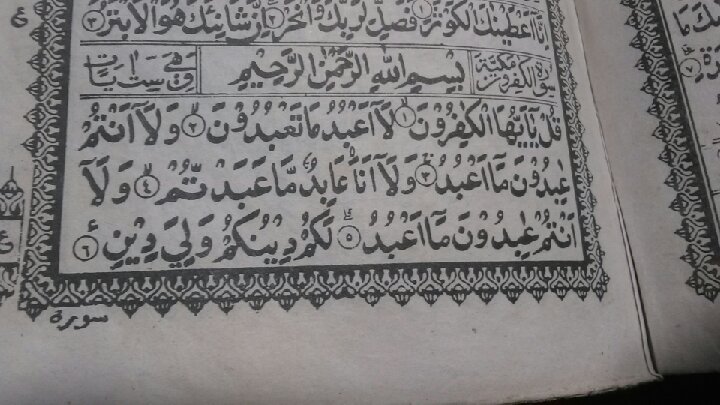 اِنَّاۤ اَعْطَيْنٰكَ الْكَوْثَرَ ۱ فَصَلِّ لِرَبِّكَ وَانْحَرْ ۲ اِنَّ شَانِئَكَ هُوَ الْاَبْتَرُ ۳
سورة الكفرون مكية بِسْمِ اللّٰهِ الرَّحْمٰنِ الرَّحِيْمِ وهي ست اٰيات
قُلْ يٰۤاَيُّهَا الْكٰفِرُوْنَ ۱ لَاۤ اَعْبُدُ مَا تَعْبُدُوْنَ ۲ وَلَاۤ اَنْتُمْ
عٰبِدُوْنَ مَاۤ اَعْبُدُ ۳ وَلَاۤ اَنَا عَابِدٌ مَّا عَبَدْتُّمْ ۴ وَلَاۤ
اَنْتُمْ عٰبِدُوْنَ مَاۤ اَعْبُدُ ۵ لَكُمْ دِيْنُكُمْ وَلِيَ دِيْنِ ۶
سورة